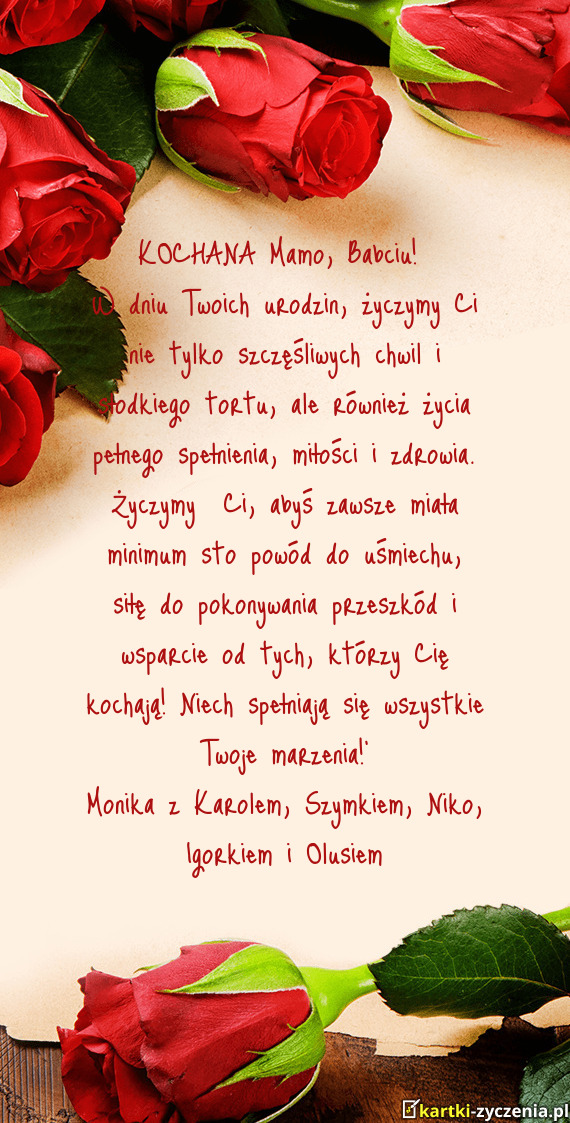 KOCHANA Mamo, Babciu!
W dniu Twoich urodzin, życzymy Ci
nie tylko szczęśliwych chwil i
słodkiego tortu, ale również życia
pełnego spełnienia, miłości i zdrowia.
Życzymy Ci, abyś zawsze miała
minimum sto powód do uśmiechu,
siłę do pokonywania przeszkód i
wsparcie od tych, którzy Cię
kochają! Niech spełniają się wszystkie
Twoje marzenia!"
Monika z Karolem, Szymkiem, Niko,
Igorkiem i Olusiem
kartki-zyczenia.pl